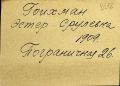 Гойхман
Эстер Срулевна
1909
Пограничну 26